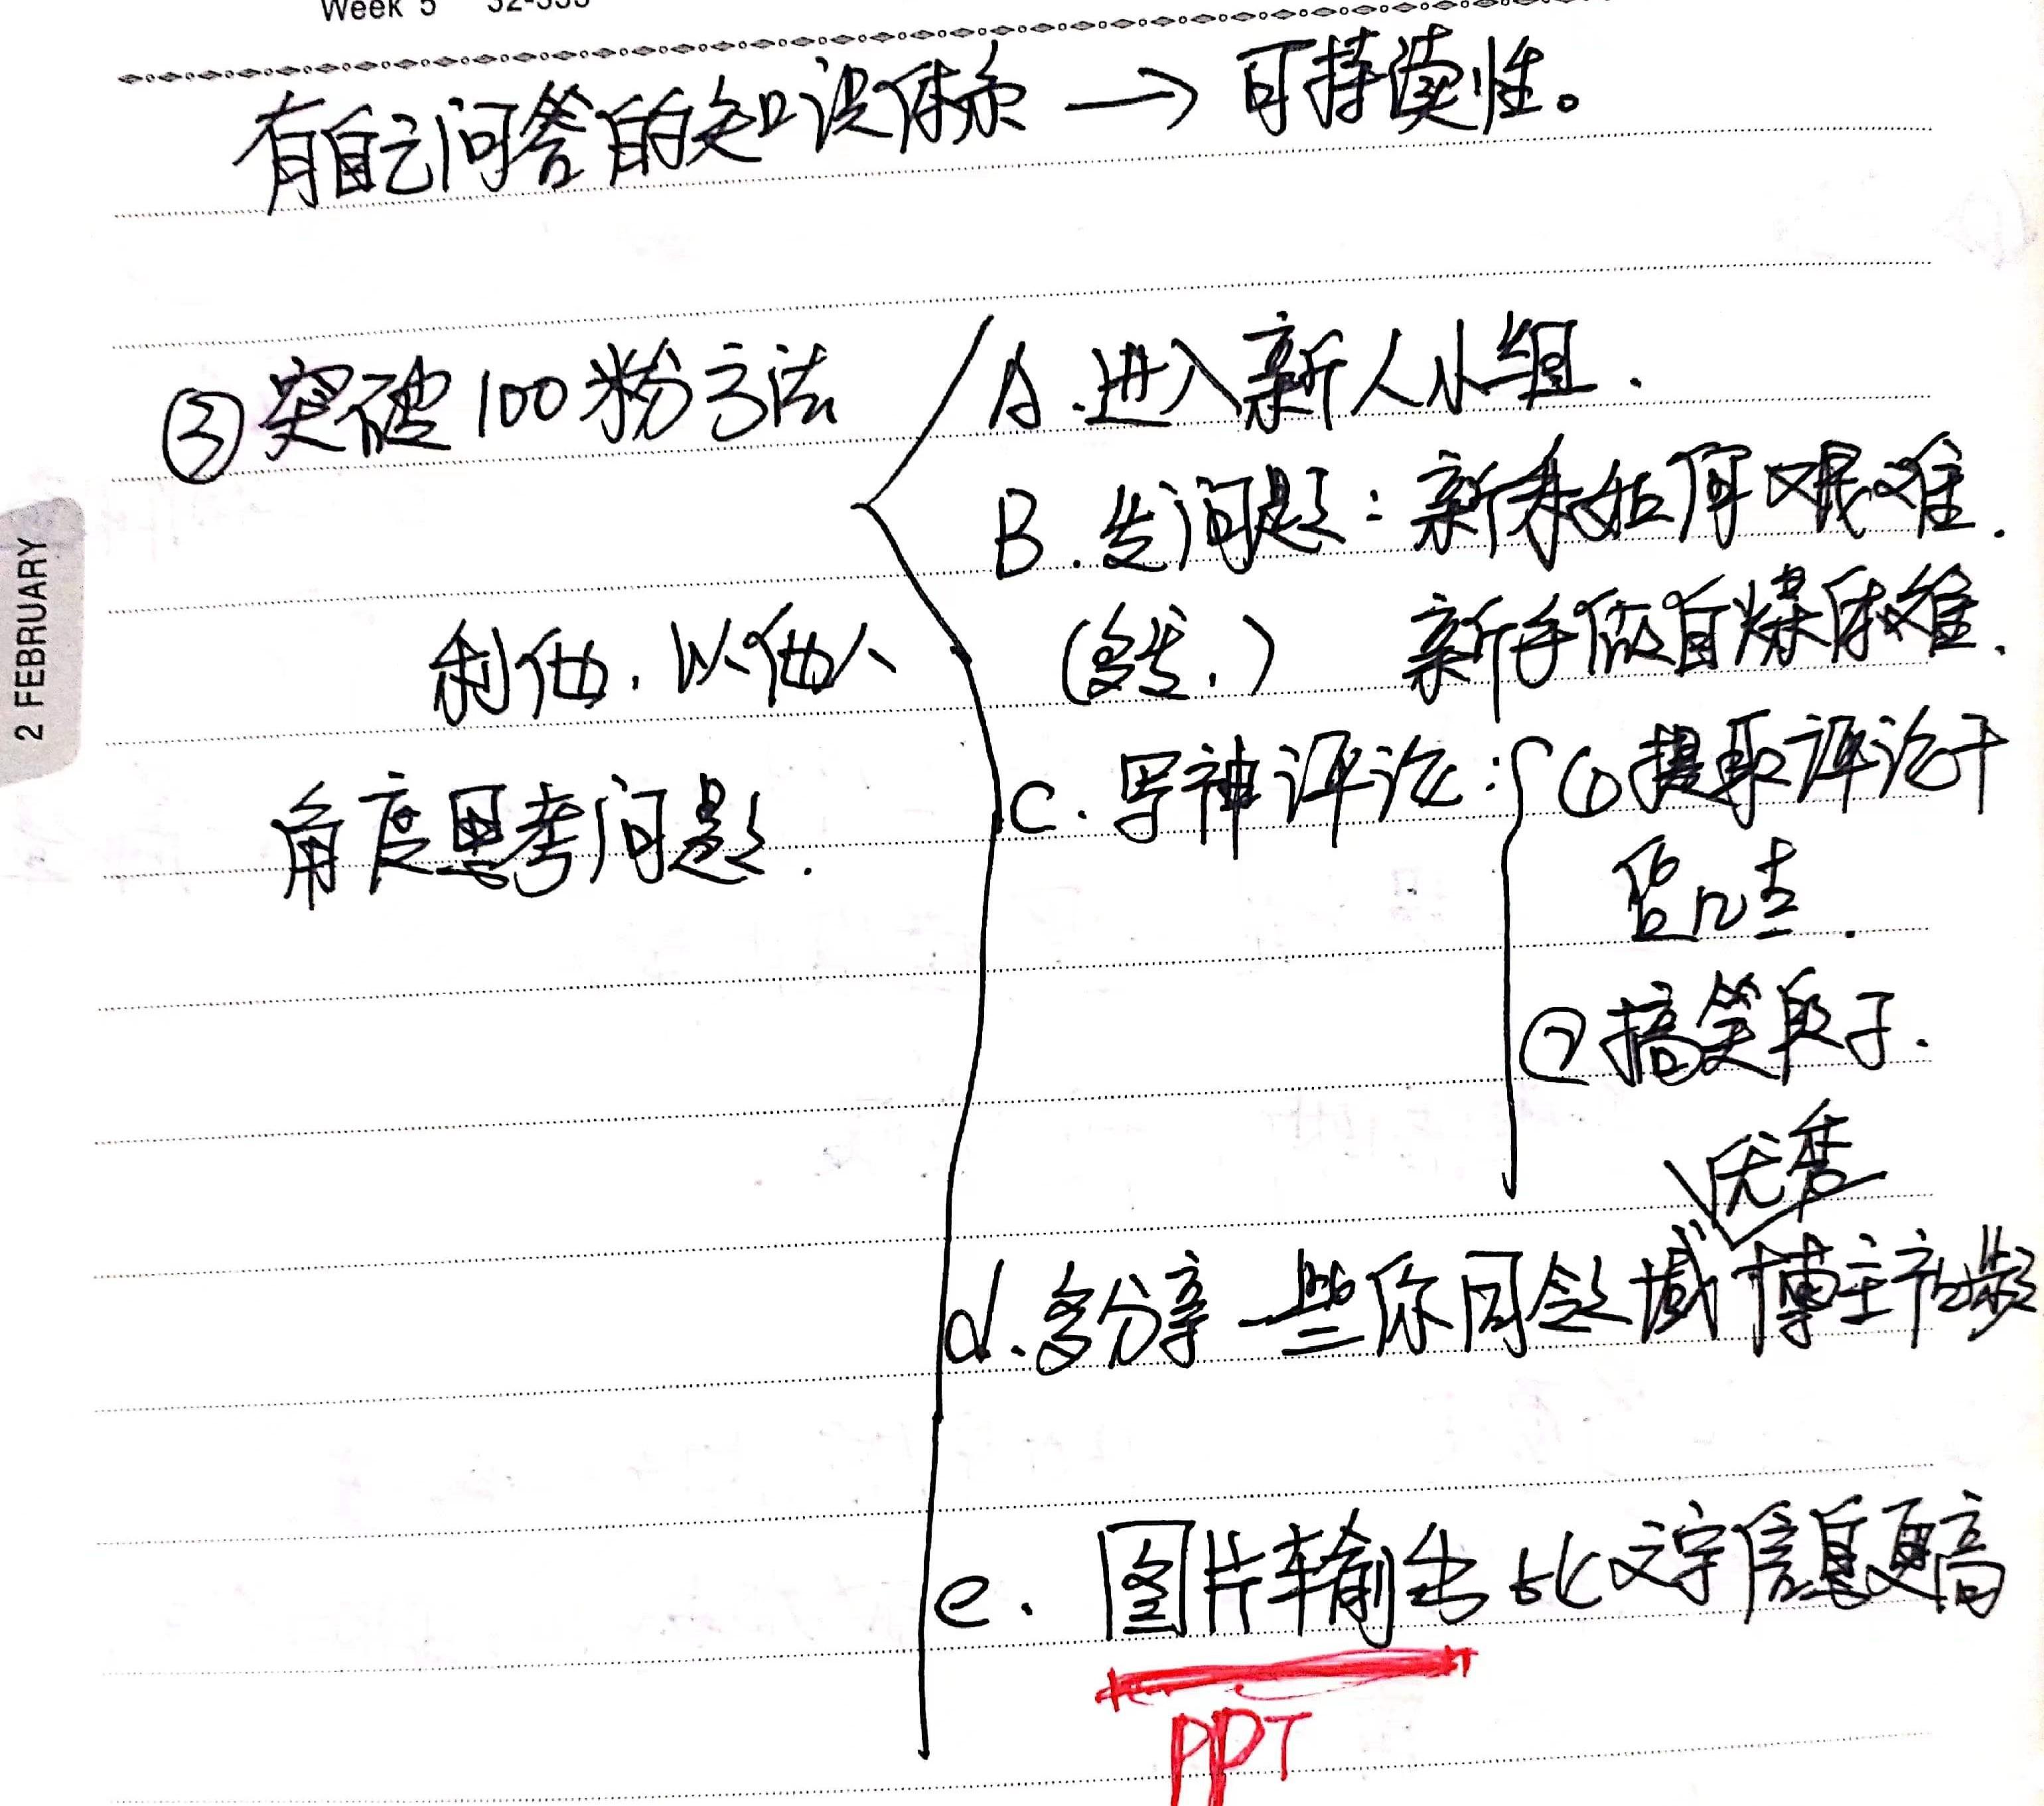 Week 5
有自己问答的知识体系 → 可持续性。
③突破100粉方法
利他，以他人
角度思考问题.
A.进入新人小组.
B.发问题：新手如何艰难.
(多发.) 新手做自媒体难.
C.写神评论：①提取评论干
货几主.
②搞笑段子.
优秀
d.多分享一些你同领域博主视频
e. 图片输出比文字信息更高
PPT
2 FEBRUARY